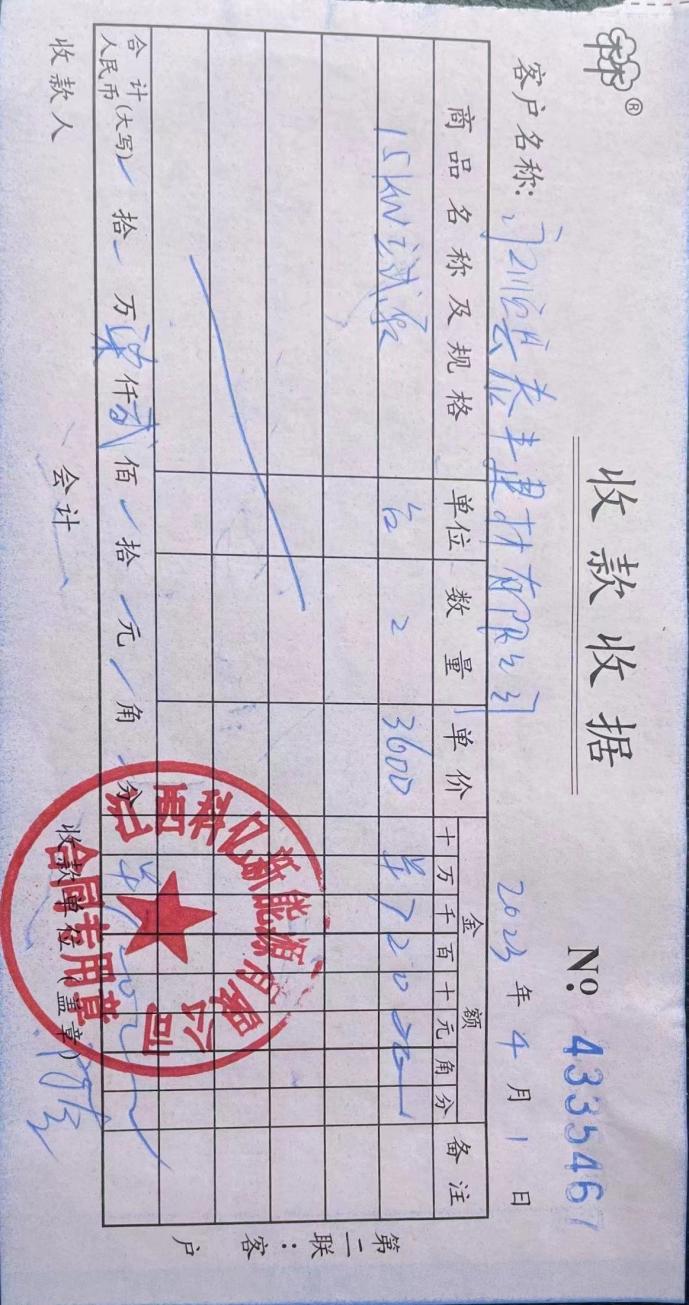 收款收据
№: 4335467
客户名称: 泰丰建材有限公司
2023 年 4 月 1 日
商品名称及规格 单位 数量 单价 金额 备注
十 万 千 百 十 元 角 分
15KW 台 2 3600 ¥ 7 2 0 0
合计人民币(大写) 拾 万 柒 仟 贰 佰 拾 元 角 分 ¥ 7200
收款人 会计 收款单位(盖章)
第二联:客户
江西科亿新能源有限公司
合同专用章